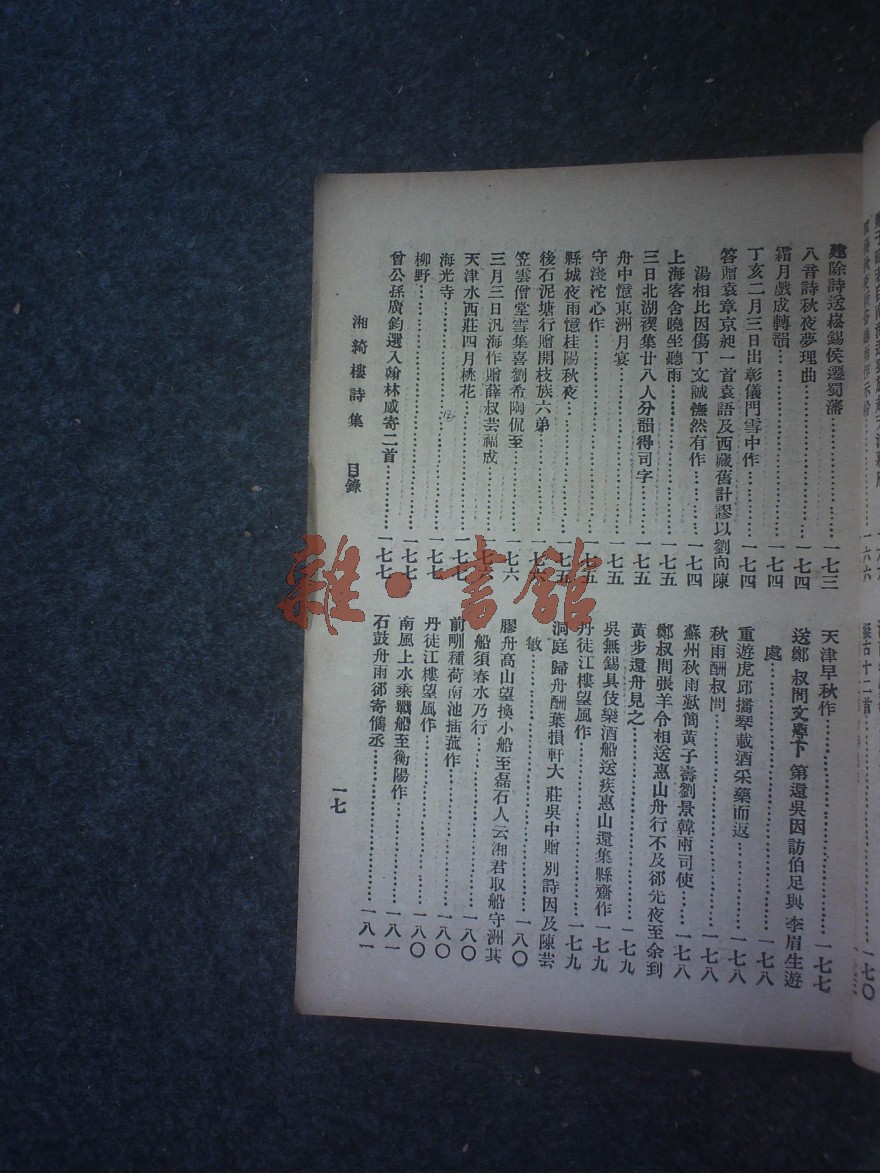 建除詩送崧錫侯遷蜀藩⋯⋯⋯⋯一七三
八音詩秋夜夢理曲⋯⋯⋯⋯一七四
霜月戲成轉韻⋯⋯⋯⋯一七四
丁亥二月三日出彰儀門雪中作⋯⋯⋯⋯一七四
答贈袁章京昶一首袁語及西藏舊計謬以劉向陳
湯相比因傷丁文誠憮然有作⋯⋯⋯⋯一七四
上海客舍曉坐聽雨⋯⋯⋯⋯一七五
三日北湖禊集廿八人分韻得司字⋯⋯⋯⋯一七五
舟中憶東洲月宴⋯⋯⋯⋯一七五
守淺沱心作⋯⋯⋯⋯一七五
縣城夜雨憶桂陽秋夜⋯⋯⋯⋯一七五
後石泥塘行贈開枝族六弟⋯⋯⋯⋯一七六
笠雲僧堂雪集喜劉希陶侃至⋯⋯⋯⋯一七六
三月三日汎海作贈薛叔芸福成⋯⋯⋯⋯一七六
天津水西莊四月桃花⋯⋯⋯⋯一七七
海光寺⋯⋯⋯⋯一七七
柳野⋯⋯⋯⋯一七七
曾公孫廣鈞選入翰林感寄二首⋯⋯⋯⋯一七七
天津早秋作⋯⋯⋯⋯一七七
送鄭叔問文學下第還吳因訪伯足與李眉生遊
處⋯⋯⋯⋯一七八
重遊虎邱攜琴載酒采藥而返⋯⋯⋯⋯一七八
秋雨酬叔問⋯⋯⋯⋯一七八
蘇州秋雨歎簡黃子壽劉景韓兩司使⋯⋯⋯⋯一七八
鄭叔問張羊令相送惠山舟行不及郤先夜至余到
黃步還舟見之⋯⋯⋯⋯一七九
吳無錫具伎樂酒船送疾惠山還集縣齋作⋯⋯⋯⋯一七九
丹徒江樓望風作⋯⋯⋯⋯一七九
洞庭歸舟酬葉損軒大莊吳中贈別詩因及陳芸
敏⋯⋯⋯⋯一八〇
膠舟高山望換小船至磊石人云湘君取船守洲其
船須春水乃行⋯⋯⋯⋯一八〇
前剛種荷南池插菰作⋯⋯⋯⋯一八〇
丹徒江樓望風作⋯⋯⋯⋯一八〇
南風上水乘戰船至衡陽作⋯⋯⋯⋯一八一
石鼓舟雨郤寄儁丞⋯⋯⋯⋯一八一
湘綺樓詩集 目錄
一七
雜·書館